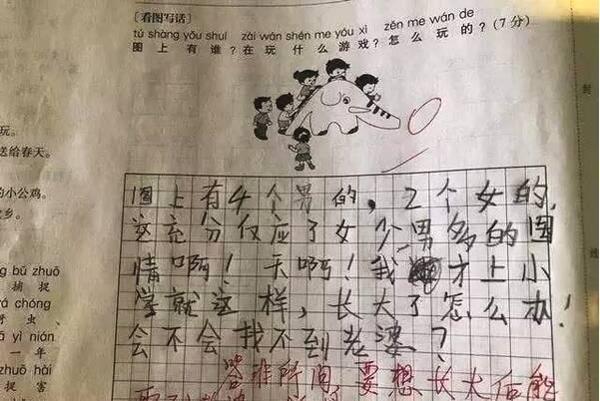 [看图写话]
tú shàng yǒu shuí zài wán shén me yóu xì zěn me wán de
图上有谁?在玩什么游戏?怎么玩的?(7分)
图上有4个男的,2个女的,
这充分仅应了女少男多的国
情啊!天啊!我才上小
学就这样,长大了怎么办!
会不会找不到老婆?
答非所问,要想长大后能
玩。
送给春天。
的小公鸡。
乡。
bǔ zhuō
捕捉
chóng
虫、
yì nián
一年
zhuō hài
捉害